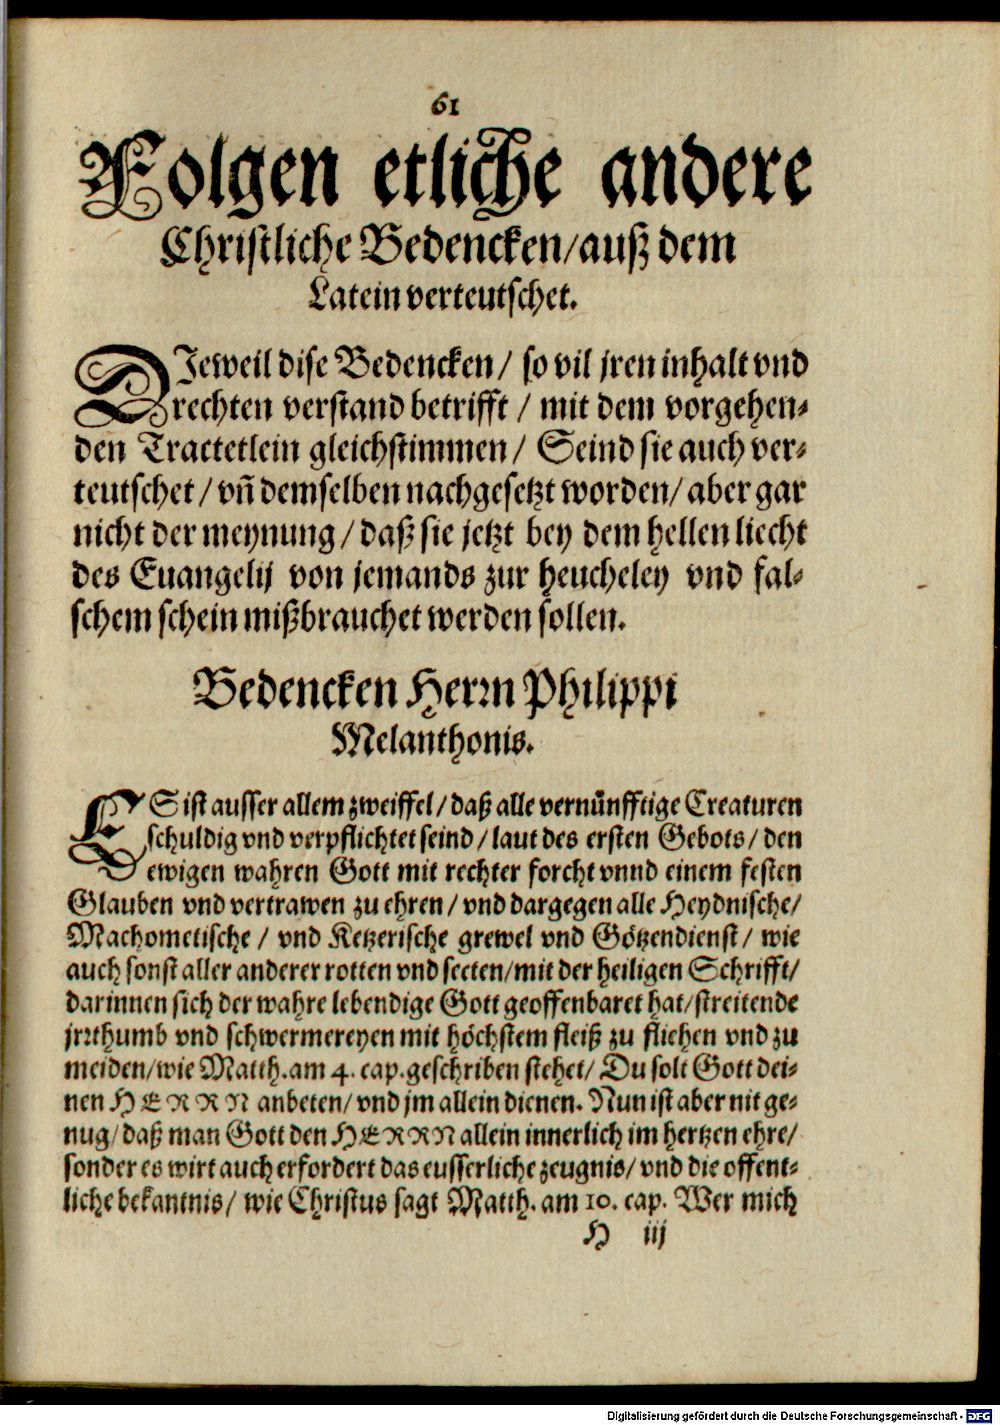 61
Folgen etliche andere
Christliche Bedencken/auß dem
Latein verteutschet.
DJeweil dise Bedencken / so vil jren inhalt vnd
rechten verstand betrifft / mit dem vorgehen-
den Tractetlein gleichstimmen / Seind sie auch ver-
teutschet / vñ demselben nachgesetzt worden/ aber gar
nicht der meynung / daß sie jetzt bey dem hellen liecht
des Euangelij von jemands zur heucheley vnd fal-
schem schein mißbrauchet werden sollen.
Bedencken Herrn Philippi
Melanthonis.
ES ist ausser allem zweiffel/ daß alle vernünfftige Creaturen
schuldig vnd verpflichtet seind / laut des ersten Gebots/ den
ewigen wahren Gott mit rechter forcht vnnd einem festen
Glauben vnd vertrawen zu ehren / vnd dargegen alle Heydnische/
Machometische / vnd Ketzerische grewel vnd Götzendienst/ wie
auch sonst aller anderer rotten vnd secten/mit der heiligen Schrifft/
darinnen sich der wahre lebendige Gott geoffenbaret hat/streitende
jrrthumb vnd schwermereyen mit höchstem fleiß zu fliehen vnd zu
meiden/wie Matth.am 4. cap.geschriben stehet/ Du solt Gott dei-
nen HERRN anbeten/ vnd jm allein dienen. Nun ist aber nit ge-
nug/daß man Gott den HERRN allein innerlich im hertzen ehre/
sonder es wirt auch erfordert das eusserliche zeugnis/ vnd die offent-
liche bekantnis/ wie Christus sagt Matth. am 10. cap. Wer mich
H iij
Digitalisierung gefördert durch die Deutsche Forschungsgemeinschaft - DFG